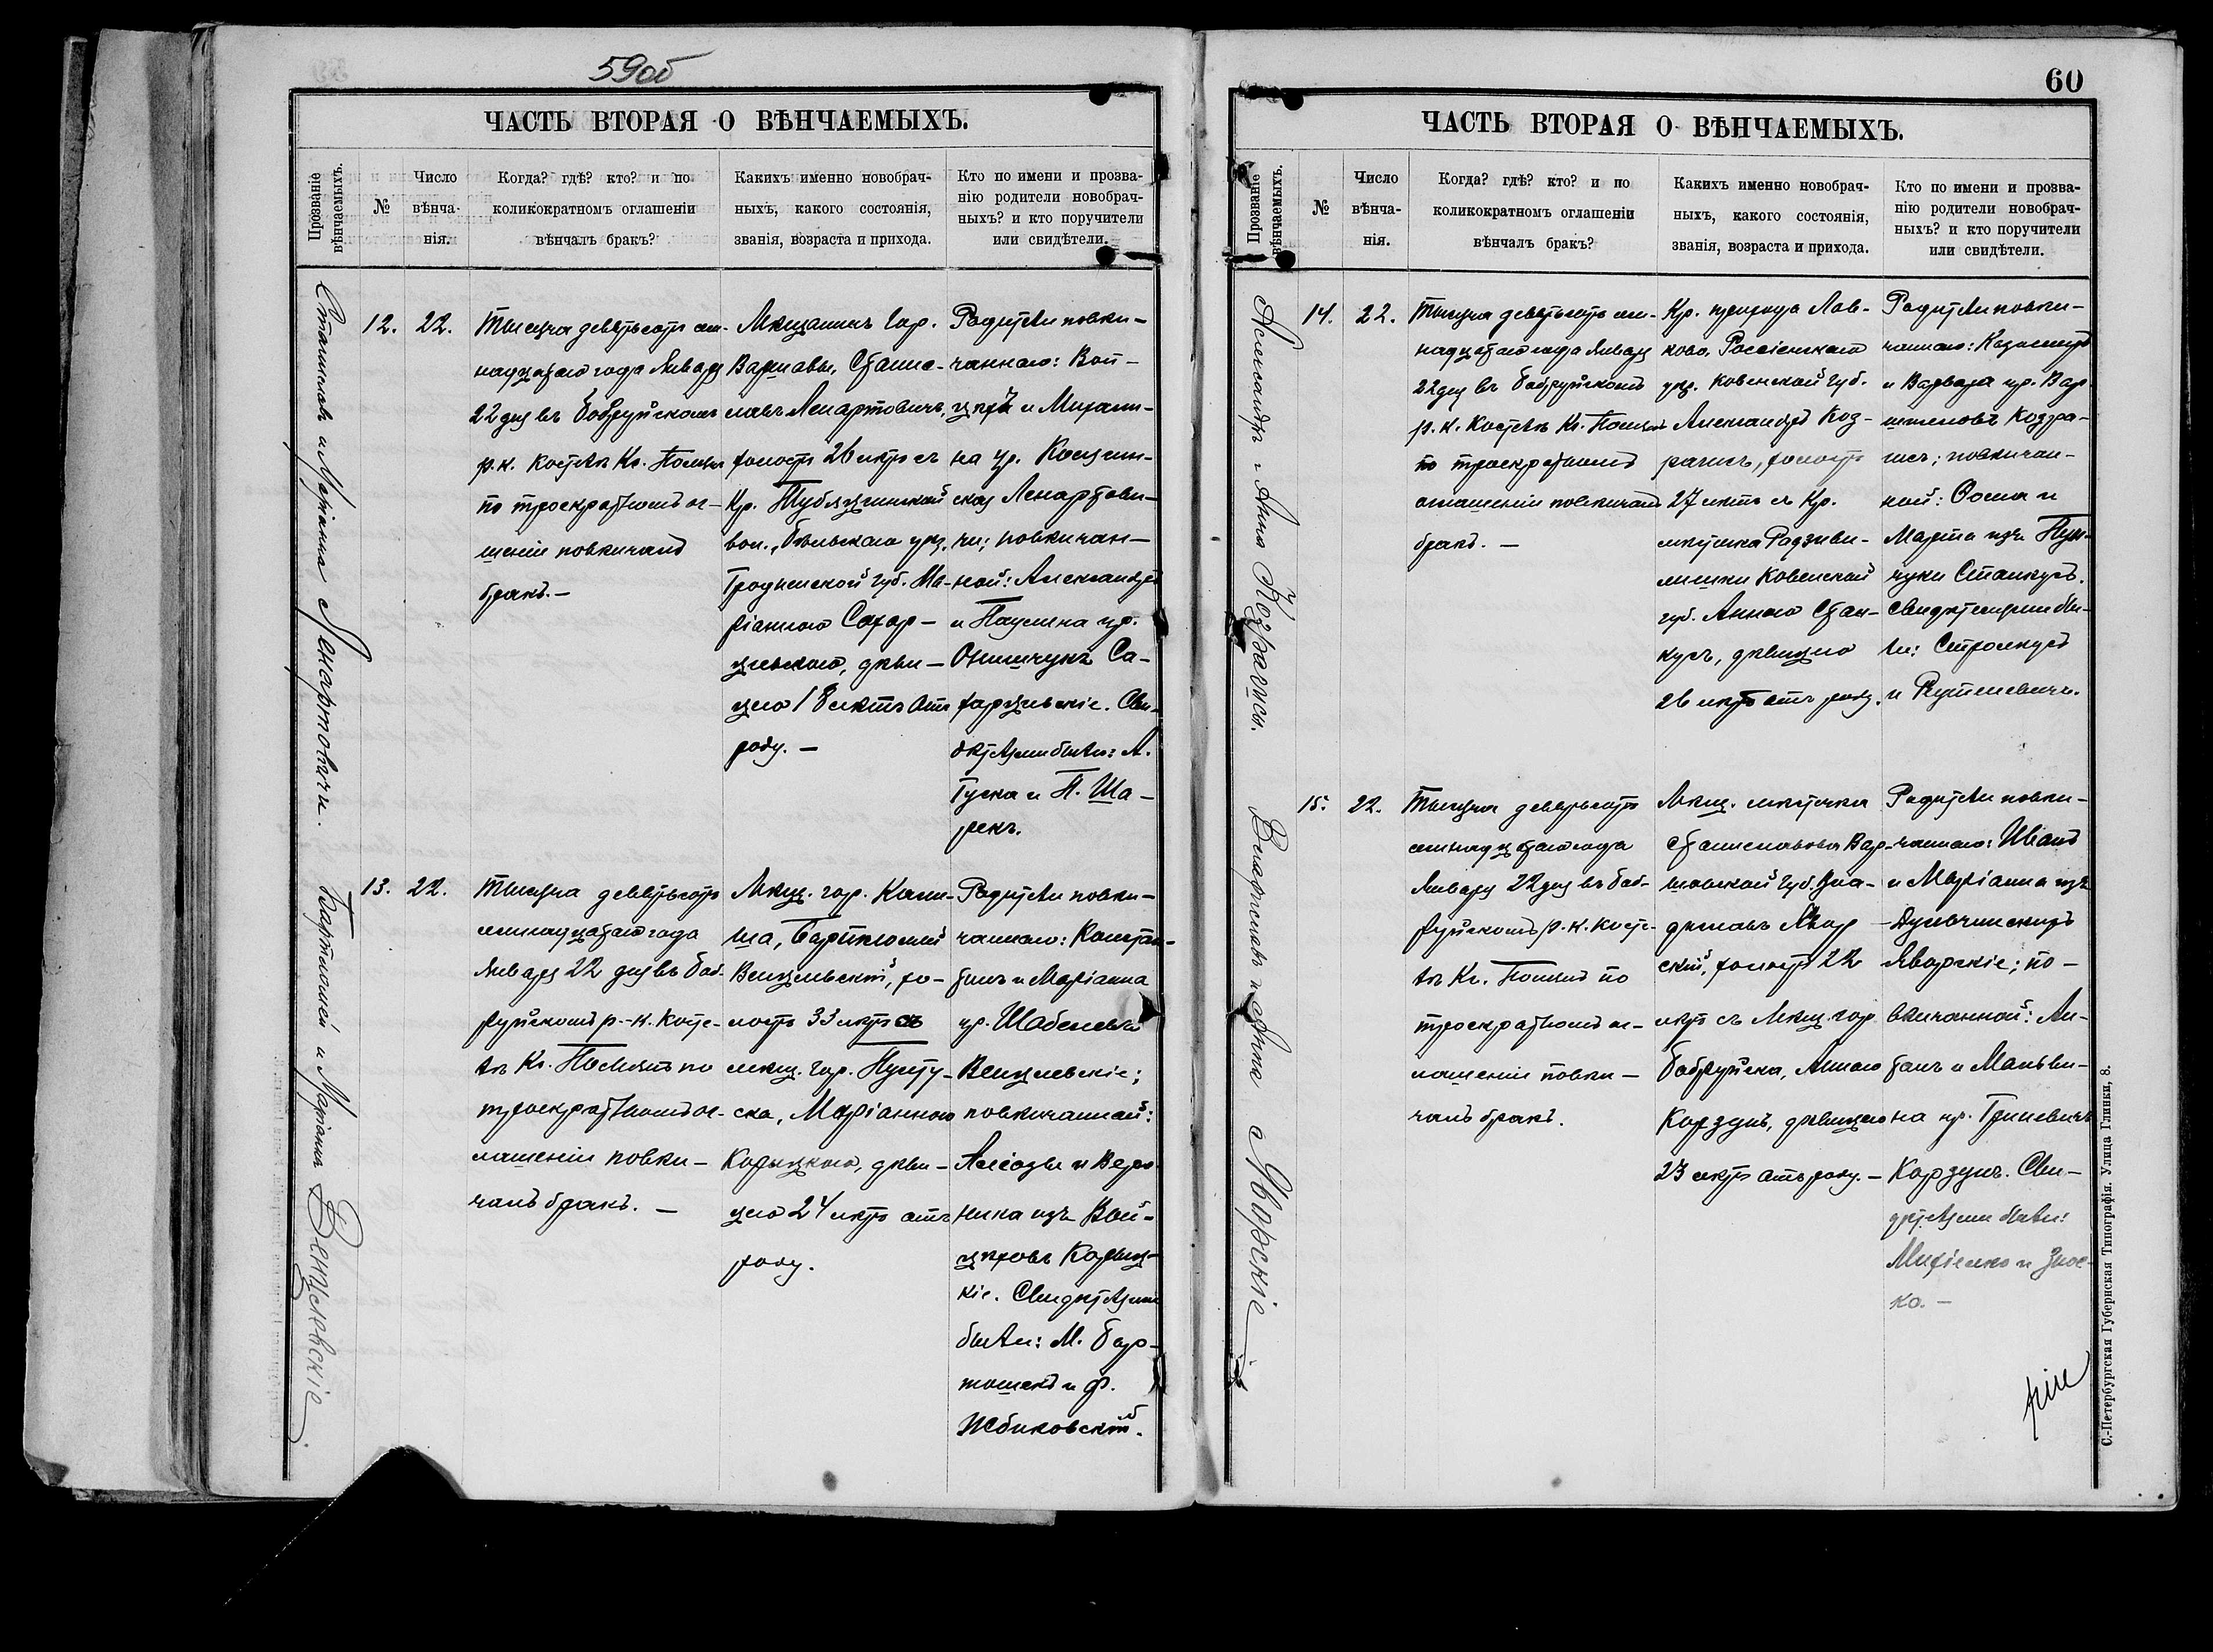 59об
ЧАСТЬ ВТОРАЯ О ВѢНЧАЕМЫХЪ.
Прозваніе вѣнчаемыхъ.
№
Число вѣнча-нія.
Когда? гдѣ? кто? и по
коликократномъ оглашеніи
вѣнчалъ бракъ?
Какихъ именно новобрач-
ныхъ, какого состоянія,
званія, возраста и прихода.
Кто по имени и прозва-
нію родители новобрач-
ныхъ? и кто поручители
или свидѣтели.
Станиславъ и Маріанна Ленартовичи.
12.
22.
Тысяча девятьсотъ сем-
надцатаго года Января
22 дня въ Бобруйскомъ
р.к. костелѣ Кс.
по троекратномъ ог-
шеніи повѣнчанъ
бракъ. —
Мѣщанинъ гор.
Варшавы, Станис-
лавъ Ленартовичъ,
холостъ 26 лѣтъ съ
Кр.
вол., Бѣльскаго уѣз.
Гродненской губ. Ма-
ріанною Сахар-
цевскою, дѣви-
цею 18 лѣтъ отъ
роду. —
Родители повѣн-
чаннаго: Вой-
цѣхъ и Маріан-
на ур.
ская Ленартови-
чи; повѣнчан-
ной: Александръ
и Паулина ур.
Онищукъ Са-
харцевскіе. Сви-
дѣтелями были: А.
Гуска и П. Ша-
рекъ.
Бартоломей и Маріанна Венцлевскіе.
13.
22.
Тысяча девятьсотъ
семнадцатаго года
Января 22 дня въ Боб-
руйскомъ р.-к. косте-
лѣ Кс. по
троекратномъ ог-
лашеніи повѣн-
чанъ бракъ. —
Мѣщ. гор. Кали-
ша, Бартоломей
Венцлевскій, хо-
лостъ 33 лѣтъ съ
мѣщ. гор. Пулту-
ска, Маріанною
Корыцкою, дѣви-
цею 24 лѣтъ отъ
роду.
Родители повѣн-
чаннаго: Констан-
тинъ и Маріанна
ур.
Венцлевскіе;
повѣнчанной:
Алоизы и Веро-
ника изъ Вой-
цѣховъ Корыц-
кіе. Свидѣтелями
были: М. Бар-
тошекъ и Ф.
Жбиковскій.
60
ЧАСТЬ ВТОРАЯ О ВѢНЧАЕМЫХЪ.
Прозваніе вѣнчаемыхъ.
№
Число вѣнча-нія.
Когда? гдѣ? кто? и по
коликократномъ оглашеніи
вѣнчалъ бракъ?
Какихъ именно новобрач-
ныхъ, какого состоянія,
званія, возраста и прихода.
Кто по имени и прозва-
нію родители новобрач-
ныхъ? и кто поручители
или свидѣтели.
Александръ и Анна Козрагисы.
14.
22.
Тысяча девятьсотъ сем-
надцатаго года Января
22 дня въ Бобруйскомъ
р.к. костелѣ Кс.
по троекратномъ
оглашеніи повѣнчанъ
бракъ. —
Кр. прихода Лав-
ково, Россіенскаго
уѣз. Ковенской губ.
Александръ Коз-
рагисъ, холостъ
27 лѣтъ съ Кр.
мѣстечка Радзиви-
лишки Ковенской
губ. Анною Стан-
кусъ, дѣвицею
26 лѣтъ отъ роду.
Родители повѣн-
чаннаго: Казимиръ
и Варвара ур.
Козра-
гисъ; повѣнчан-
ной: Осипъ и
Марта изъ
Станкусъ.
Свидѣтелями бы-
ли:
и
Владиславъ и Анна Яворскіе
15.
22.
Тысяча девятьсотъ
семнадцатаго года
Января 22 дня въ Боб-
руйскомъ р.к. косте-
лѣ Кс. по
троекратномъ ог-
лашеніи повѣн-
чанъ бракъ.
Мѣщ. мѣстечка
Станиславова Вар-
шавской губ. Вла-
диславъ Явор-
скій, холостъ 22
лѣтъ съ Мѣщ. гор.
Бобруйска, Анною
Корзунъ, дѣвицею
23 лѣтъ отъ роду. —
Родители повѣн-
чаннаго: Иванъ
и Маріанна изъ
Дульчинскихъ
Яворскіе; по-
вѣнчанной: Ан-
тонъ и Мальви-
на ур. Гриневичъ
Корзунъ. Сви-
дѣтелями были:
Михіенко и Знос-
ко. —
С.-Петербургская Губернская Типографія. Улица Глинки, 8.